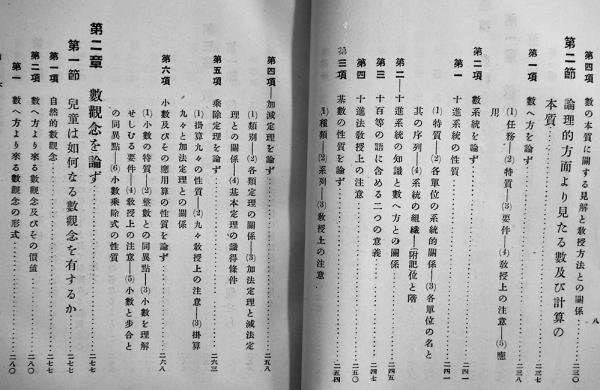 八
第四項 數の本質に關する見解と教授方法との關係 二三〇
第二節 論理的方面より見たる數及び計算の
本質
第一項 數へ方を論ず 二三八
(1)任務―(2)特質―(3)要件―(4)教授上の注意―(5)應
用
第二項 數系統を論ず 二四一
第一 十進系統の性質 二四一
(1)特質―(2)各單位の系統的關係―(3)各單位の名と
其の序列―(4)系統の組織―(附記位と階
第二 十進系統の知識と數へ方との關係 二四五
第三 十百等の語に含める二つの意義 二四七
第四 十進法教授上の注意 二五〇
第三項 基數の性質を論ず 二五四
(1)種類―(2)系列―(3)教授上の注意
第四項 加減定理を論ず 二五八
(1)類別―(2)各類定理の關係―(3)加法定理と減法定
理との關係―(4)基本定理の識得條件
第五項 乘除定理を論ず 二六三
(1)掛算九々の性質―(2)九々教授上の注意―(3)掛算
九々と加法定理との關係
第六項 小數及びその應用算の性質を論ず 二六八
(1)小數の特質―(2)整數との同異點―(3)小數を理解
せしむる要件―(4)教授上の注意―(5)小數と步合と
の同異點―(6)小數乘除式の性質
第二章 數觀念を論ず 二七七
第一節 兒童は如何なる數觀念を有するか 二七七
第一項 自然的數觀念 二七七
第二項 數へ方より來る數觀念及びその價値 二八〇
第一 數へ方より來る數觀念の形式 二八〇